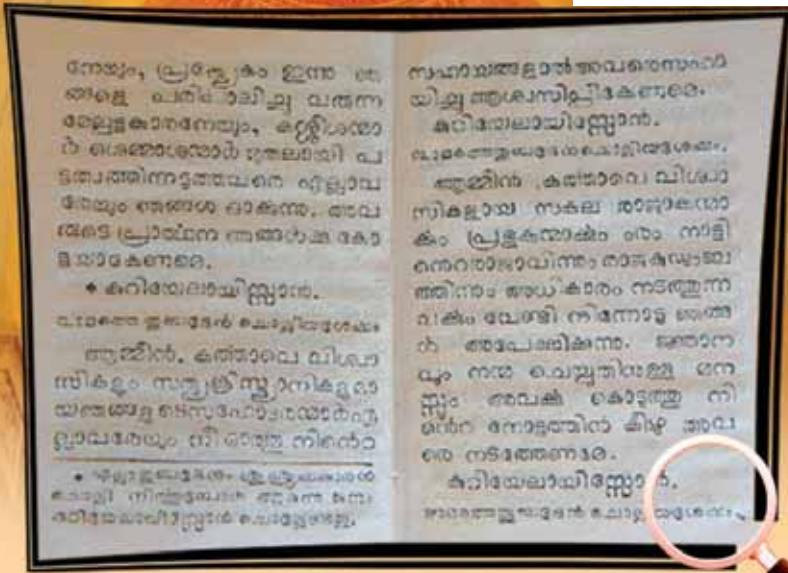 നേയും, പ്രത്യേകം ഇന്നു ഞ
ങ്ങളെ പരിപാലിച്ചു വരുന്ന
മേല്പട്ടക്കാരനേയും, കശ്ശീശന്മാ
ർ ശെമ്മാശന്മാർ മുതലായി പ
ട്ടത്വത്തിന്നടുത്തവരെ എല്ലാവ
രേയും ഞങ്ങൾ ഓർക്കുന്നു. അവ
രുടെ പ്രാർത്ഥന ഞങ്ങൾക്കു കോ
ട്ടയാകേണമെ.
* കുറിയേലായിസ്സോൻ.
ചൊല്ലിയശേഷം
ആമ്മീൻ. കർത്താവെ വിശ്വാ
സികളും സത്യക്രിസ്ത്യാനികളുമാ
യഞങ്ങളുടെസഹോദരന്മാർഎ
ല്ലാവരേയും നീ ഓർത്തു നിന്റെ
കുറിയേലായിസ്സോൻ ചൊല്ലേണ്ടതു.
സഹായങ്ങളാൽഅവരെസഹാ
യിച്ചു ആശ്വസിപ്പിക്കേണമെ.
കുറിയേലായിസ്സോൻ.
ചൊല്ലിയശേഷം.
ആമ്മീൻ കർത്താവെ വിശ്വാ
സികളായ സകല രാജാക്കന്മാ
ർക്കും പ്രഭുക്കന്മാർക്കും ഈ നാട്ടി
ന്റെരാജാവിന്നും രാജകുഡുംബ
ത്തിന്നും അധികാരം നടത്തുന്ന
വർക്കും വേണ്ടി നിന്നോടു ഞങ്ങ
ൾ അപേക്ഷിക്കുന്നു. ജ്ഞാന
വും നന്മ ചെയ്യുന്നതിന്നുള്ള മന
സ്സും അവർക്കു കൊടുത്തു നി
ന്റെ നോട്ടത്തിൻ കീഴു അവ
രെ നടത്തേണമെ.
കുറിയേലായിസ്സോൻ.
ചൊല്ലിയശേഷം